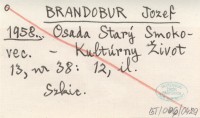 BRANDOBUR Jozef
1958. Osada Starý Smoko-
vec. - Kultúrny Život
13, nr 38: 12, il.
Szkic.